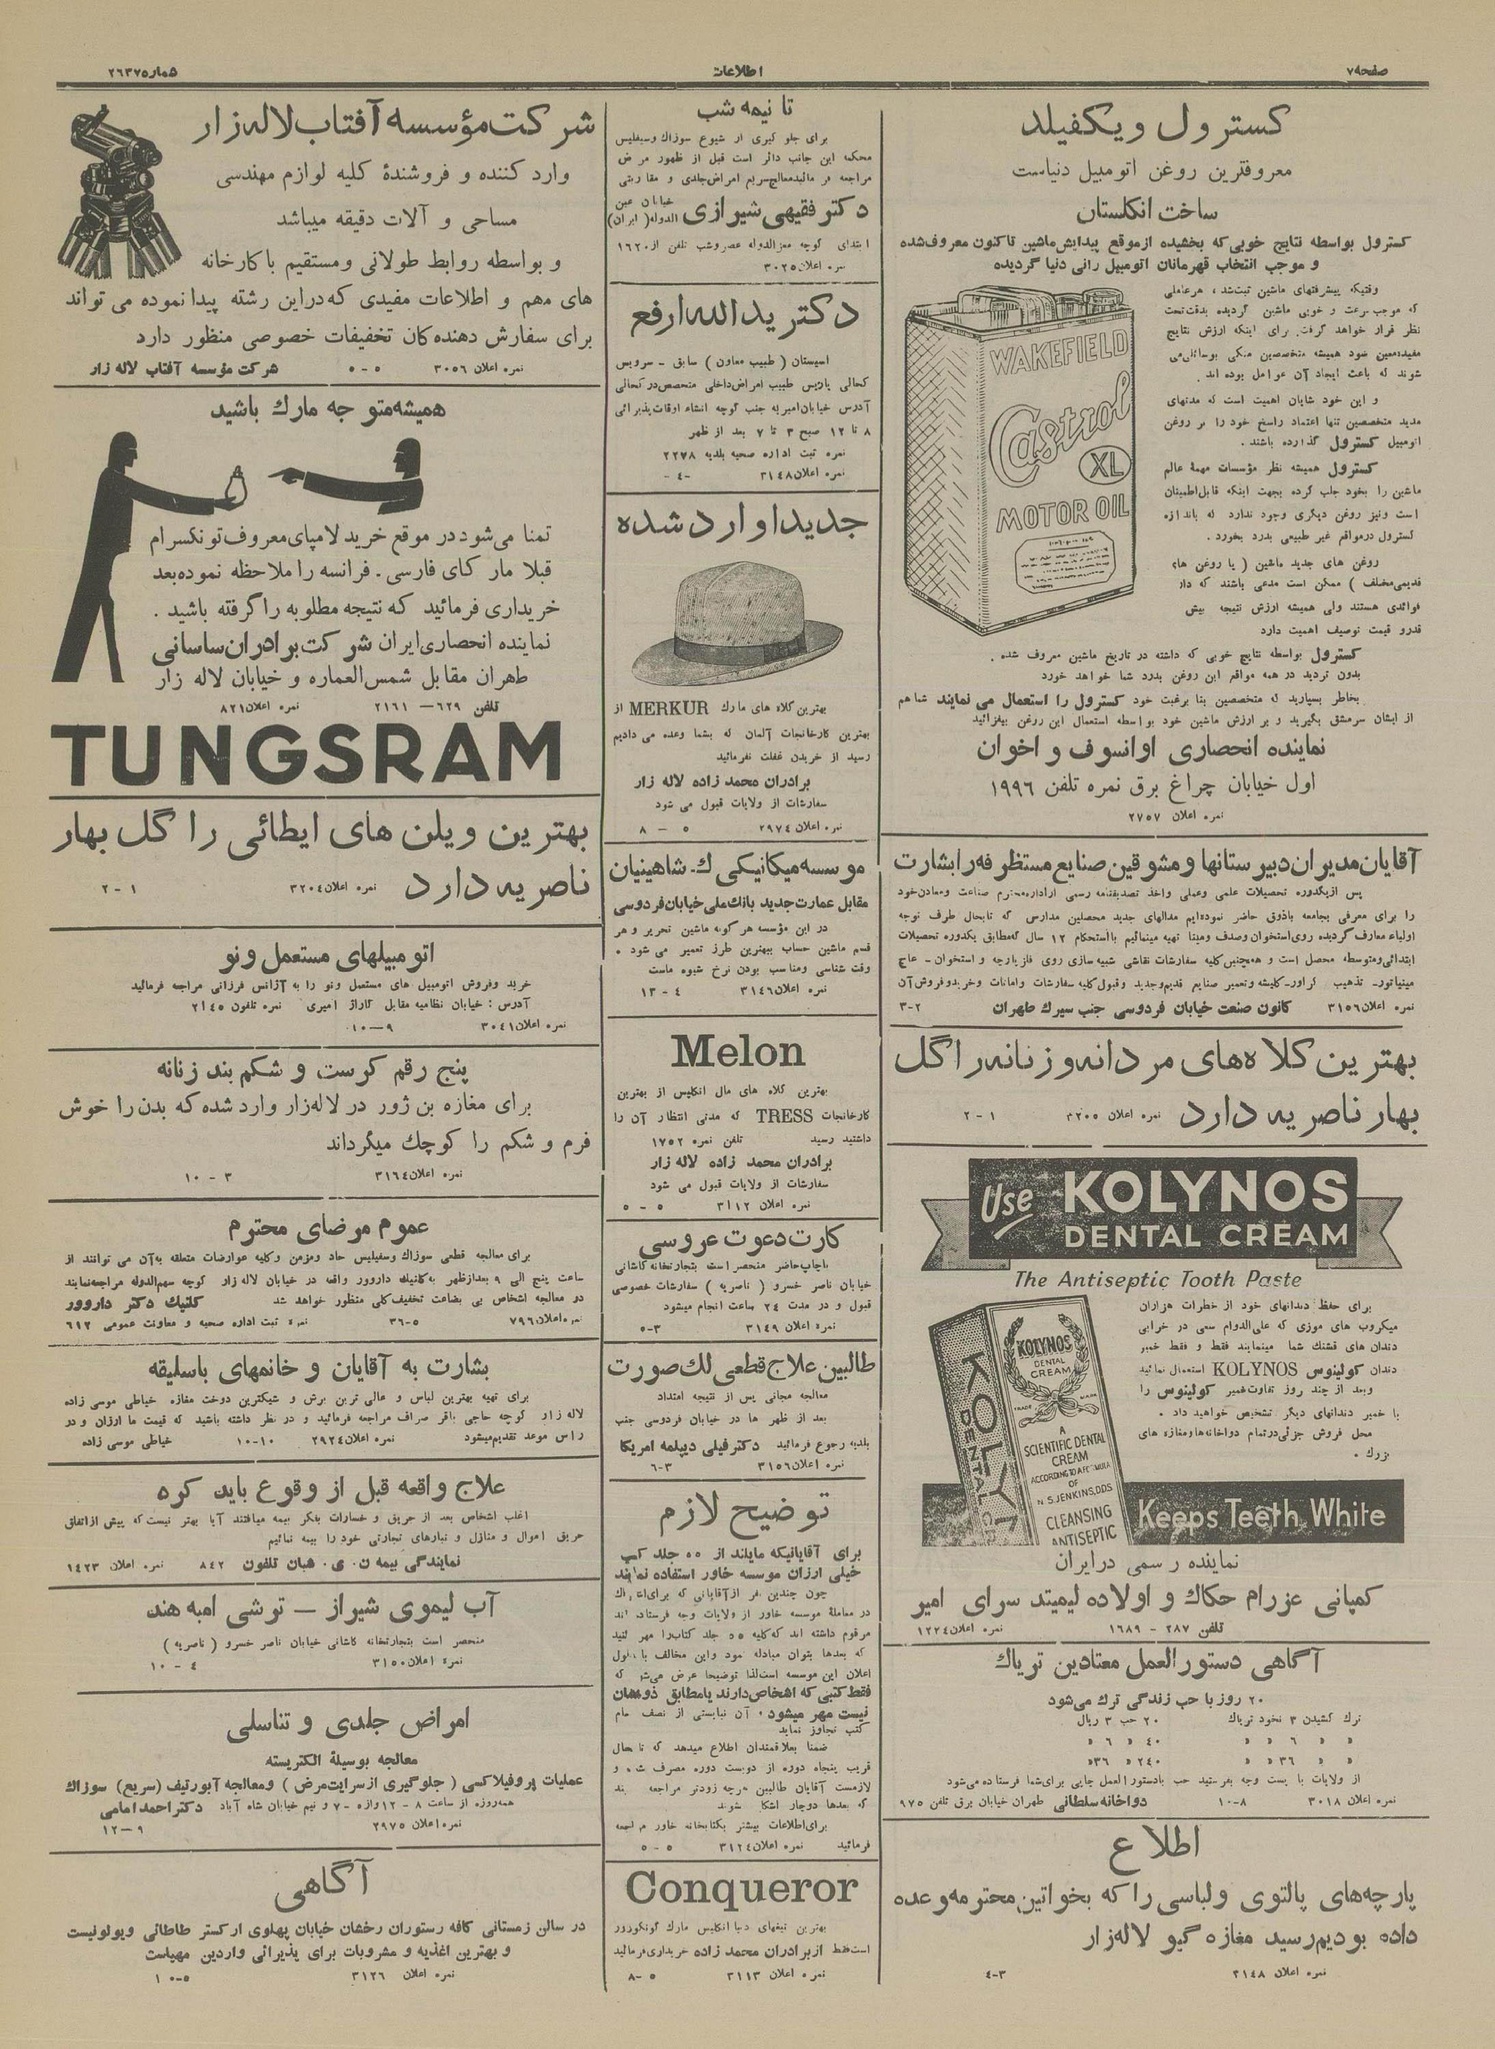 صفحه ۷
اطلاعات
شماره ۲۶۳۷
کسترول ویکفیلد
معروفترین روغن اتومبیل دنیاست
ساخت انگلستان
کسترول بواسطه نتایج خوبی که بخشیده ازموقع پیدایش‌ماشین تاکنون معروف‌شده
و موجب انتخاب قهرمانان اتومبیل رانی دنیا گردیده
WAKEFIELD
Castrol
XL
MOTOR OIL
وقتیکه پیشرفتهای ماشین ثبت‌شد، هرعاملی
که موجب سرعت و خوبی ماشین گردیده بدقت تحت
نظر قرار خواهد گرفت. برای اینکه ارزش نتایج
مفیده‌معین شود همیشه متخصصین متکی بوسائلی‌می
شوند که باعث ایجاد آن عوامل بوده اند.
و این خود شایان اهمیت است که مدتهای
مدید متخصصین تنها اعتماد راسخ خود را بر روغن
اتومبیل کسترول گذارده باشند.
کسترول همیشه نظر مؤسسات مهمهٔ عالم
ماشین را بخود جلب کرده بجهت اینکه قابل‌اطمینان
است ونیز روغن دیگری وجود ندارد که باندازه
کسترول درمواقع غیر طبیعی بدرد بخورد.
روغن های جدید ماشین ( یا روغن های
قدیمی‌مختلف ) ممکن است مدعی باشند که دارای
فوائدی هستند ولی همیشه ارزش نتیجه بیش
قدرو قیمت توصیف اهمیت دارد
کسترول بواسطه نتایج خوبی که داشته در تاریخ ماشین معروف شده.
بدون تردید در همه مواقع این روغن بدرد شما خواهد خورد
بخاطر بسپارید که متخصصین بنا برغبت خود کسترول را استعمال می نمایند شما هم
از ایشان سرمشق بگیرید و بر ارزش ماشین خود بواسطه استعمال این روغن بیفزائید
نماینده انحصاری اوانسوف و اخوان
اول خیابان چراغ برق نمره تلفن ۱۹۹۶
نمره اعلان ۲۷۵۷
آقایان‌مدیران‌دبیرستانها و مشوقین صنایع مستظرفه‌را بشارت
پس ازیکدوره تحصیلات علمی وعملی واخذ تصدیقنامه رسمی ازاداره‌محترم صناعت ومعادن‌خود
را برای معرفی بجامعه باذوق حاضر نموده‌ایم مدالهای جدید محصلین مدارس که تابحال طرف توجه
اولیاء معارف گردیده روی‌استخوان وصدف ومینا تهیه مینمائیم بااستحکام ۱۲ سال که‌مطابق یکدوره تحصیلات
ابتدائی‌ومتوسطه محصل است و همچنین کلیه سفارشات نقاشی شبیه سازی روی فلز پارچه و استخوان - عاج
مینیاتور- تذهیب گراور-کلیشه وتعمیر صنایع قدیم‌وجدید وقبول‌کلیه سفارشات وامانات وخریدوفروش‌آن
نمره اعلان ۳۱۵۶ کانون صنعت خیابان فردوسی جنب سیرک طهران ۲-۳
بهترین کلاه‌های مردانه‌وزنانه‌راگل
بهار ناصریه دارد نمره اعلان ۳۲۰۵ ۱ - ۲
Use KOLYNOS
DENTAL CREAM
The Antiseptic Tooth Paste
KOLYNOS
DENTAL
CREAM
TRADE MARK
A
SCIENTIFIC DENTAL
CREAM
ACCORDING TO A FORMULA
OF
N.S.JENKINS,DDS
CLEANSING
ANTISEPTIC
برای حفظ دندانهای خود از خطرات هزاران
میکروب های موزی که علی‌الدوام سعی در خرابی
دندان های قشنگ شما مینمایند فقط و فقط خمیر
دندان کولینوس KOLYNOS استعمال نمائید
وبعد از چند روز تفاوت‌خمیر کولینوس را
با خمیر دندانهای دیگر تشخیص خواهید داد.
محل فروش جزئی‌درتمام دواخانه‌هاومغازه های
بزرگ.
Keeps Teeth White
نماینده رسمی درایران
کمپانی عزرام حکاک و اولاده لیمیتد سرای امیر
تلفن ۲۸۷ - ۱۶۸۹ نمره اعلان ۱۲۲۴
آگاهی دستورالعمل معتادین تریاک
۲۰ روز با حب زندگی ترک می‌شود
ترک کشیدن ۳ نخود تریاک ۲۰ حب ۳ ریال
« « ۶ « « ۴۰ « ۶ «
« « ۳۶ « « ۲۴۰ « ۳۶«
از ولایات با پست وجه بفرستید حب بادستورالعمل جایی برای‌شما فرستاده می‌شود
نمره اعلان ۳۰۱۸ ۸-۱۰ دواخانه سلطانی طهران خیابان برق تلفن ۹۷۵
اطلاع
پارچه‌های پالتوی ولباسی راکه بخواتین محترمه‌وعده
داده بودیم‌رسید مغازه گیو لاله‌زار
نمره اعلان ۳۱۴۸ ۳-۴
تا نیمه شب
برای جلو گیری از شیوع سوزاک وسیفلیس
محکمه این جانب دائر است قبل از ظهور مرض
مراجعه فرمائیدمعالج‌سریع امراض‌جلدی و مقاربتی
دکتر فقیهی شیرازی خیابان عین الدوله(ایران)
ابتدای کوچه معزالدوله عصروشب تلفن از ۱۶۲۰
نمره اعلان ۳۰۲۵
دکتر یدالله ارفع
اسیستان ( طبیب معاون ) سابق - سرویس
کحالی پاریس طبیب امراض‌داخلی متخصص‌در کحالی
آدرس خیابان‌امیریه جنب کوچه انشاء اوقات‌پذیرائی
۸ تا ۱۲ صبح ۳ تا ۷ بعد از ظهر
نمره ثبت اداره صحیه بلدیه ۲۲۷۸
نمره اعلان ۳۱۴۸ -۴ -
جدیداوارد شده
بهترین کلاه های مارک MERKUR از
بهترین کارخانجات آلمان که بشما وعده می دادیم
رسید از خریدن غفلت نفرمائید
برادران محمد زاده لاله زار
سفارشات از ولایات قبول می شود
نمره اعلان ۲۹۷۴ ۵ - ۸
موسسه میکانیکی ک. شاهینیان
مقابل عمارت‌جدید بانک‌ملی خیابان‌فردوسی
در این مؤسسه هر گونه ماشین تحریر و هر
قسم ماشین حساب ببهترین طرز تعمیر می شود.
وقت شناسی ومناسب بودن نرخ شیوه ماست
نمره اعلان ۳۱۴۶ ۴ - ۱۳
Melon
بهترین کلاه های مال انگلیس از بهترین
کارخانجات TRESS که مدتی انتظار آن را
داشتید رسید تلفن نمره ۱۷۵۲
برادران محمد زاده لاله زار
سفارشات از ولایات قبول می شود
نمره اعلان ۳۱۱۲ ۵ - ۵
کارت دعوت عروسی
باچاپ‌حاضر منحصر است بتجارتخانه کاشانی
خیابان ناصر خسرو ( ناصریه ) سفارشات خصوصی
قبول و در مدت ۲۴ ساعت انجام میشود
نمره اعلان ۳۱۴۹ ۳-۵
طالبین علاج قطعی لک صورت
معالجه مجانی پس از نتیجه امتداد
بعد از ظهر ها در خیابان فردوسی جنب
بلدیه رجوع فرمائید دکترفیلی دیپلمه امریکا
نمره اعلان ۳۱۵۶ ۳-۶
توضیح لازم
برای آقایانیکه مایلند از ۵۵ جلد کتب
خیلی ارزان موسسه خاور استفاده نمایند
چون چندین نفر ازآقایانی که برای‌اشتراک
در معاملهٔ موسسه خاور از ولایات وجه فرستاده‌اند
مرقوم داشته اند که‌کلیه ۵۵ جلد کتاب‌را مهر کنید
که بعدها بتوان مبادله نمود واین مخالف با مدلول
اعلان این موسسه است‌لذا توضیحا عرض می‌شود که
فقط کتبی که اشخاص‌دارند یامطابق ذوقشان
نیست مهر میشود. آن نبایستی از نصف تمام
کتب تجاوز نماید
ضمنا بعلاقمندان اطلاع میدهد که تا بحال
قریب پنجاه دوره از دویست دوره مصرف شده و
لازمست آقایان طالبین هرچه زودتر مراجعه کنند
که بعدها دوچار اشکال نشوند
برای‌اطلاعات بیشتر بکتابخانه خاور مراجعه
فرمائید نمره اعلان ۳۱۲۴ ۵ - ۵
Conqueror
بهترین تیغهای دنیا انگلیس مارک کونکورور
است‌فقط ازبرادران محمد زاده خریداری‌فرمائید
نمره اعلان ۳۱۱۳ ۵ -۸
شرکت مؤسسه آفتاب لاله‌زار
وارد کننده و فروشندهٔ کلیه لوازم مهندسی
مساحی و آلات دقیقه میباشد
و بواسطه روابط طولانی ومستقیم باکارخانه
های مهم و اطلاعات مفیدی که‌دراین رشته پیدا نموده می تواند
برای سفارش دهنده‌کان تخفیفات خصوصی منظور دارد
نمره اعلان ۳۰۵۶ ۵ - ۵ شرکت مؤسسه آفتاب لاله زار
همیشه‌متوجه مارک باشید
تمنا می‌شوددر موقع خرید لامپای‌معروف‌تونگسرام
قبلا مارکهای فارسی . فرانسه را ملاحظه نموده‌بعد
خریداری فرمائید که نتیجه مطلوبه را گرفته باشید.
نماینده انحصاری‌ایران شرکت برادران‌ساسانی
طهران مقابل شمس‌العماره و خیابان لاله زار
تلفن ۶۲۹ — ۲۱۶۱ نمره اعلان ۸۲۱
TUNGSRAM
بهترین ویلن های ایطائی را گل بهار
ناصریه دارد نمره اعلان ۳۲۰۴ ۱ - ۲
اتومبیلهای مستعمل ونو
خرید وفروش اتومبیل های مستعمل ونو را به آژانس فرزانی مراجعه فرمائید
آدرس : خیابان نظامیه مقابل گاراژ امیری نمره تلفون ۲۱۴۵
نمره اعلان ۳۰۴۱ ۹—۱۰
پنج رقم کرست و شکم بند زنانه
برای مغازه بن ژور در لاله‌زار وارد شده که بدن را خوش
فرم و شکم را کوچک میگرداند
نمره اعلان ۳۱۶۴ ۳ - ۱۰
عموم مرضای محترم
برای معالجه قطعی سوزاک وسفیلیس حاد ومزمن وکلیه عوارضات متعلقه به‌آن می توانند از
ساعت پنج الی ۹ بعدازظهر به‌کلنیک داروور واقعه در خیابان لاله زار کوچه سهم‌الدوله مراجعه‌نمایند
در معالجه اشخاص بی بضاعت تخفیف‌کلی منظور خواهد شد کلنیک دکتر داروور
نمره‌اعلان ۷۹۶ ۵-۳۶ نمره ثبت اداره صحیه و معاونت عمومی ۶۱۲
بشارت به آقایان و خانمهای باسلیقه
برای تهیه بهترین لباس و عالی ترین برش و شیکترین دوخت مغازه خیاطی موسی زاده
لاله زار کوچه حاجی باقر صراف مراجعه فرمائید و در نظر داشته باشید که قیمت ها ارزان و در
راس موعد تقدیم‌میشود نمره اعلان ۲۹۲۴ ۱۰-۱۰ خیاطی موسی زاده
علاج واقعه قبل از وقوع باید کرد
اغلب اشخاص بعد از حریق و خسارات بفکر بیمه میافتند آیا بهتر نیست که پیش ازاتفاق
حریق اموال و منازل و انبارهای تجارتی خود را بیمه نمائیم
نمایندگی بیمه ن. ی. هبان تلفون ۸۴۲ نمره اعلان ۱۴۲۳
آب لیموی شیراز — ترشی امبه هند
منحصر است بتجارتخانه کاشانی خیابان ناصر خسرو ( ناصریه )
نمره اعلان ۳۱۵۰ ۴ - ۱۰
امراض جلدی و تناسلی
معالجه بوسیلهٔ الکتریسته
عملیات پروفیلاکسی ( جلوگیری ازسرایت‌مرض ) ومعالجه آبورتیف (سریع) سوزاک
همه‌روزه از ساعت ۸ - ۱۲وازه -۷ و نیم خیابان شاه آباد دکتراحمدامامی
نمره اعلان ۲۹۷۵ ۹—۱۲
آگاهی
در سالن زمستانی کافه رستوران رخشان خیابان پهلوی ارکستر طاطائی ویولونیست
و بهترین اغذیه و مشروبات برای پذیرائی واردین مهیاست
نمره اعلان ۳۱۲۶ ۵-۱۰